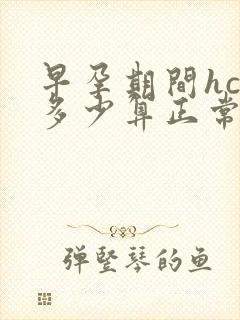 早孕期間hc
多少算正常
弹竖琴的鱼